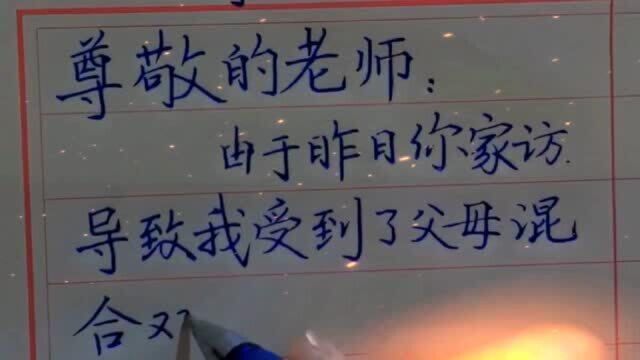 尊敬的老师：
由于昨日你家访.
导致我受到了父母混
合双